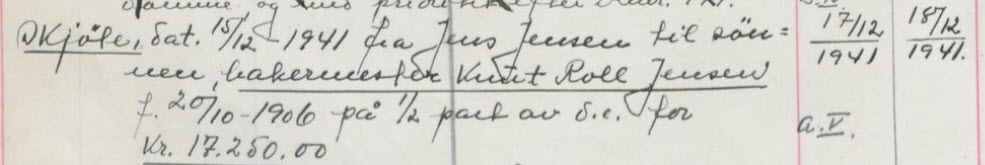 og
Skjöte, dat. 15/12-1941 fra Jens Jensen til sön= 17/12 1941 18/12 1941.
nen, bakermester Knut Roll Jensen
f. 20/10-1906 på 1/2 part av d.e. for a.V.
Kr. 17.250.00